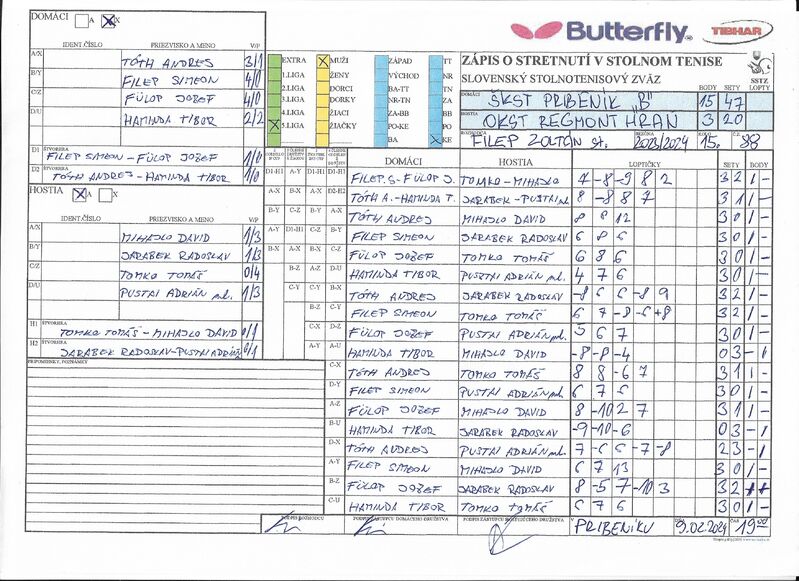 DOMÁCI A X
Butterfly TIBHAR
IDENT.ČÍSLO PRIEZVISKO A MENO V/P
A/X TÓTH ANDREJ 3/1
B/Y FILEP SIMEON 4/0
C/Z FÜLÖP JOZEF 4/0
D/U HAMINDA TIBOR 2/2
EXTRA MUŽI ZÁPAD TT
1.LIGA ŽENY VÝCHOD NR
2.LIGA DORCI BA-TT TN
3.LIGA DORKY NR-TN ZA
4.LIGA ŽIACI ZA-BB BB
5.LIGA ŽIAČKY PO-KE PO
BA KE
ZÁPIS O STRETNUTÍ V STOLNOM TENISE
SLOVENSKÝ STOLNOTENISOVÝ ZVÄZ
SSTZ
BODY SETY LOPTY
DOMÁCI ŠKST PRIBENÍK „B" 15 47
HOSTIA OKST REGMONT HRAŇ 3 20
ROZHODCA FILEP ZOLTÁN st. SEZÓNA 2023/2024 15. Č.Z. 88
D1 ŠTVORHRA FILEP SIMEON - FÜLÖP JOZEF 1/0
D2 ŠTVORHRA TÓTH ANDREJ - HAMINDA TIBOR 1/0
HOSTIA A X
IDENT.ČÍSLO PRIEZVISKO A MENO V/P
A/X MIHAJLO DAVID 1/3
B/Y JARABEK RADOSLAV 1/3
C/Z TOMKO TOMÁŠ 0/4
D/U PUSTAI ADRIÁN ml. 1/3
H1 ŠTVORHRA TOMKO TOMÁŠ - MIHAJLO DAVID 0/1
H2 ŠTVORHRA JARABEK RADOSLAV - PUSTAI ADRIÁN 0/1
PRIPOMIENKY, POZNÁMKY
DOMÁCI HOSTIA LOPTIČKY SETY BODY
D1-H1 FILEP S. - FÜLÖP J. TOMKO - MIHAJLO 7 -8 -9 8 2 3 2 1 -
D2-H2 TÓTH A. - HAMINDA T. JARABEK - PUSTAI ml. 8 -8 8 7 3 1 1 -
A-X TÓTH ANDREJ MIHAJLO DAVID 8 8 12 3 0 1 -
B-Y FILEP SIMEON JARABEK RADOSLAV 6 8 6 3 0 1 -
C-Z FÜLÖP JOZEF TOMKO TOMÁŠ 6 8 6 3 0 1 -
D-U HAMINDA TIBOR PUSTAI ADRIÁN ml. 4 7 6 3 0 1 -
B-X TÓTH ANDREJ JARABEK RADOSLAV -8 6 6 -8 9 3 2 1 -
C-Y FILEP SIMEON TOMKO TOMÁŠ 6 7 -8 -6 +8 3 2 1 -
D-Z FÜLÖP JOZEF PUSTAI ADRIÁN ml. 5 6 7 3 0 1 -
A-U HAMINDA TIBOR MIHAJLO DAVID -8 -8 -4 0 3 - 1
C-X TÓTH ANDREJ TOMKO TOMÁŠ 8 8 -6 7 3 1 1 -
D-Y FILEP SIMEON PUSTAI ADRIÁN ml. 6 7 5 3 0 1 -
A-Z FÜLÖP JOZEF MIHAJLO DAVID 8 -10 2 7 3 1 1 -
B-U HAMINDA TIBOR JARABEK RADOSLAV -9 -10 -6 0 3 - 1
D-X TÓTH ANDREJ PUSTAI ADRIÁN ml. 7 -6 6 -7 -8 2 3 - 1
A-Y FILEP SIMEON MIHAJLO DAVID 6 7 13 3 0 1 -
B-Z FÜLÖP JOZEF JARABEK RADOSLAV 8 -5 7 -10 3 3 2
C-U HAMINDA TIBOR TOMKO TOMÁŠ 6 7 6 3 0 1 -
PODPIS ROZHODCU PODPIS ZÁSTUPCU DOMÁCEHO DRUŽSTVA PODPIS ZÁSTUPCU HOSŤUJÚCEHO DRUŽSTVA V PRIBENÍKU 9.02.2024 ČAS 19 00